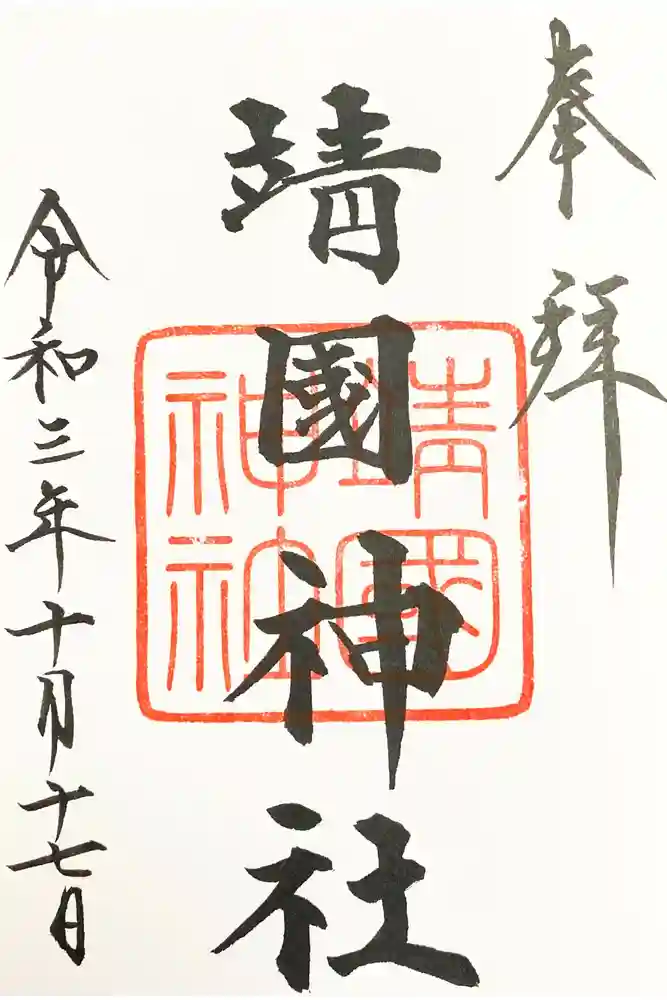 奉拜
靖國神社
靖國神社
令和三年十月十七日